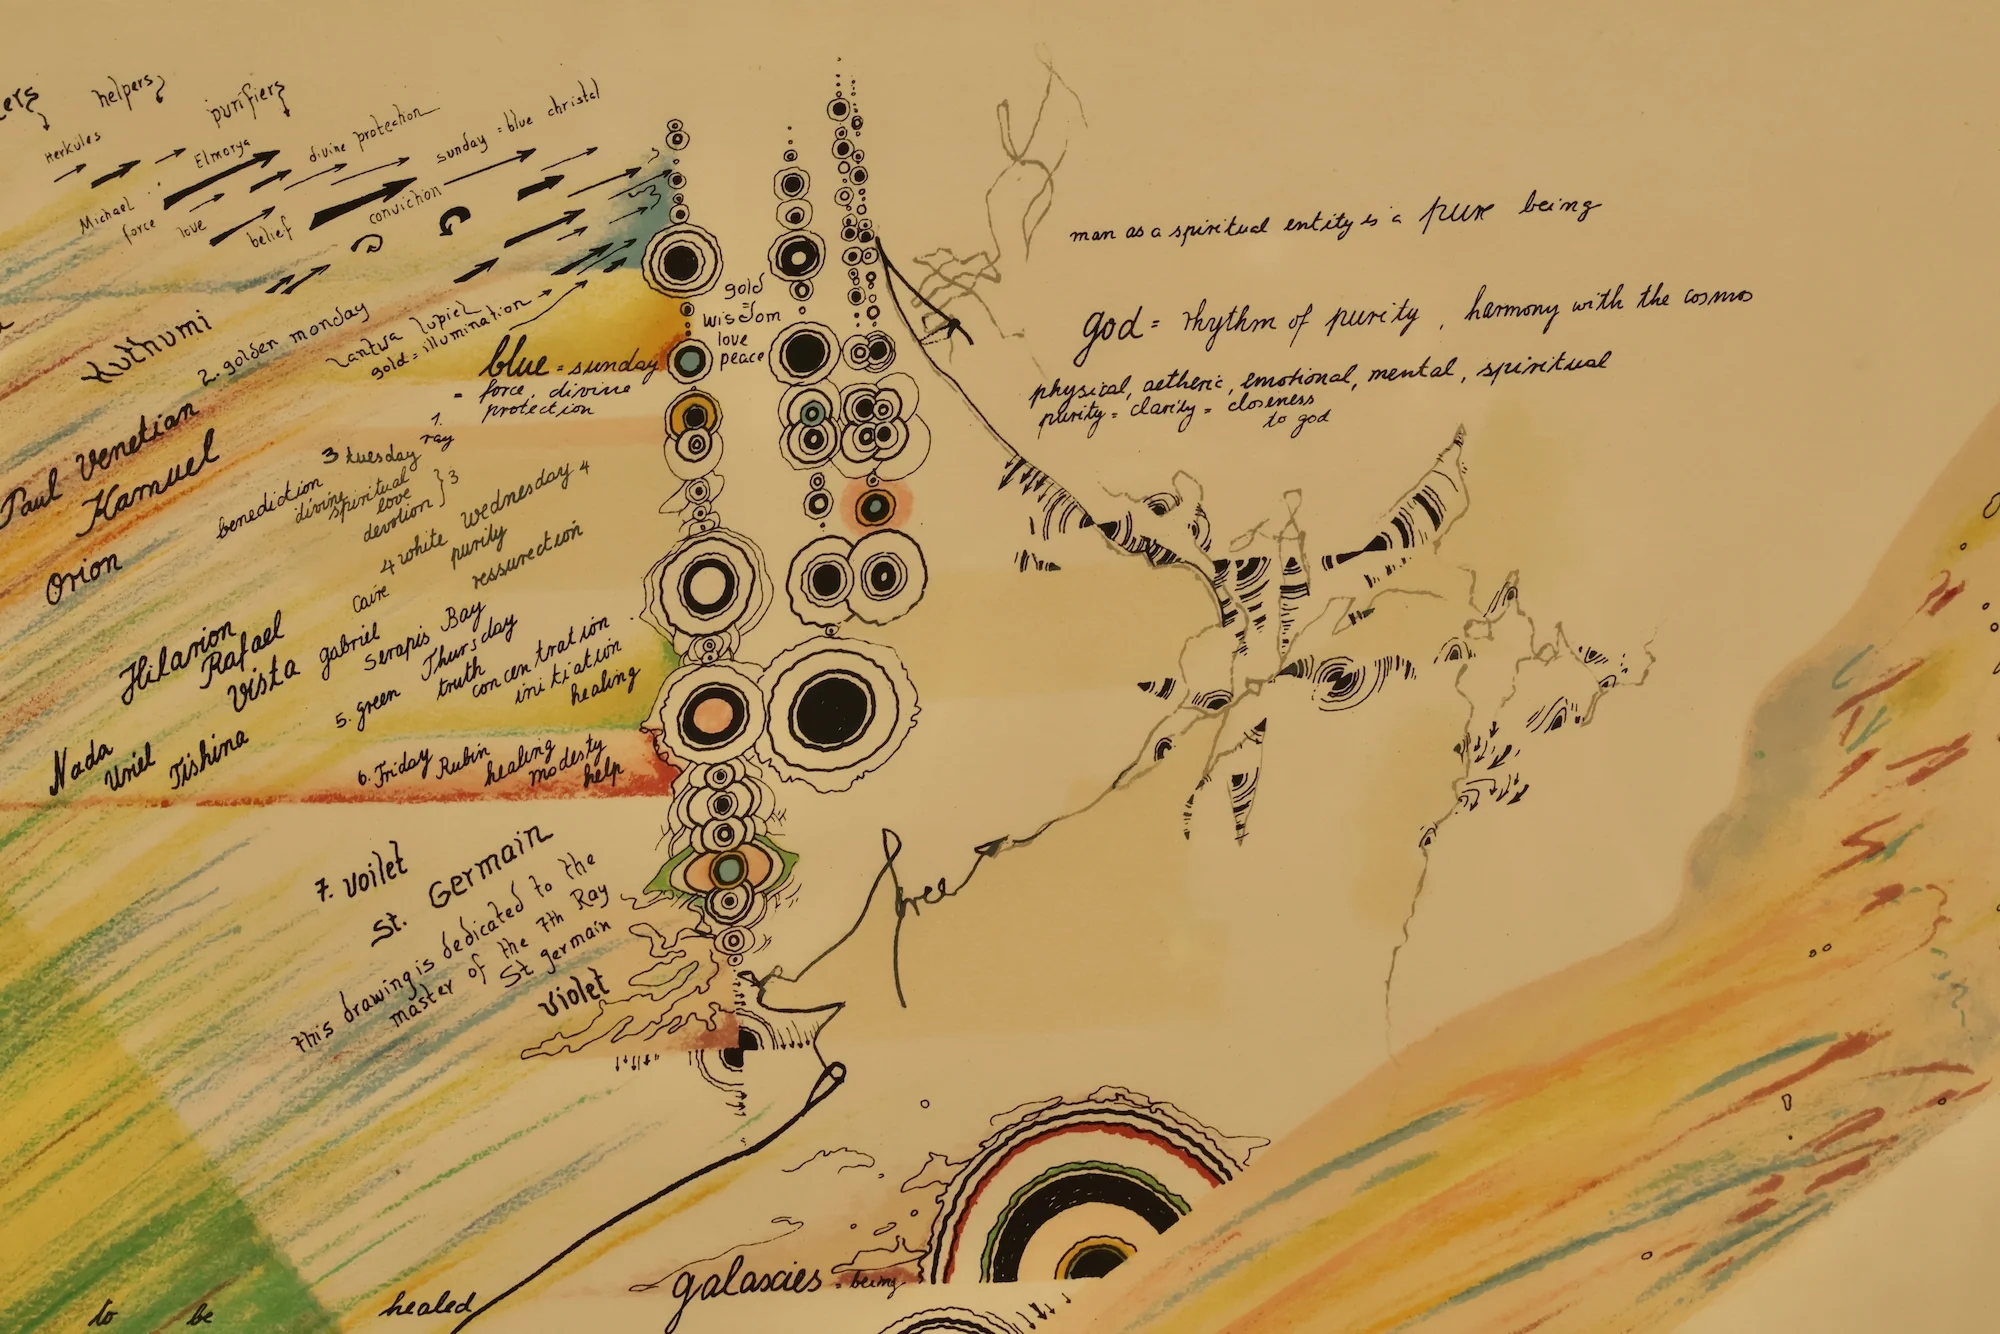 helpers
purifiers
Herkules
Elmorya
divine protection
sunday = blue christel
Michael
force
love
belief
conviction
Kuthumi
2. golden monday
Lantwa Lupiel
gold = illumination
blue = sunday
= force, divine
protection
gold
=
wisdom
love
peace
man as a spiritual entity is a pure being
god = rhythm of purity, harmony with the cosmos
physical, aetheric, emotional, mental, spiritual
purity = clarity = closeness
to god
Paul Venetian
Kamuel
Orion
1.
ray
3 tuesday
benediction
divine
spiritual
love
devotion } 3
4 white Wednesday 4
purity
ressurection
Caire
gabriel
Serapis Bay
Hilarion
Rafael
Vista
5. green Thursday
truth
concentration
initiation
healing
Nada
Uriel
Tishina
6. Friday Rubin
healing
modesty
help
7. Voilet
St. Germain
This drawing is dedicated to the
master of the 7th Ray
St germain
violet
force
galaxies = being
to be healed